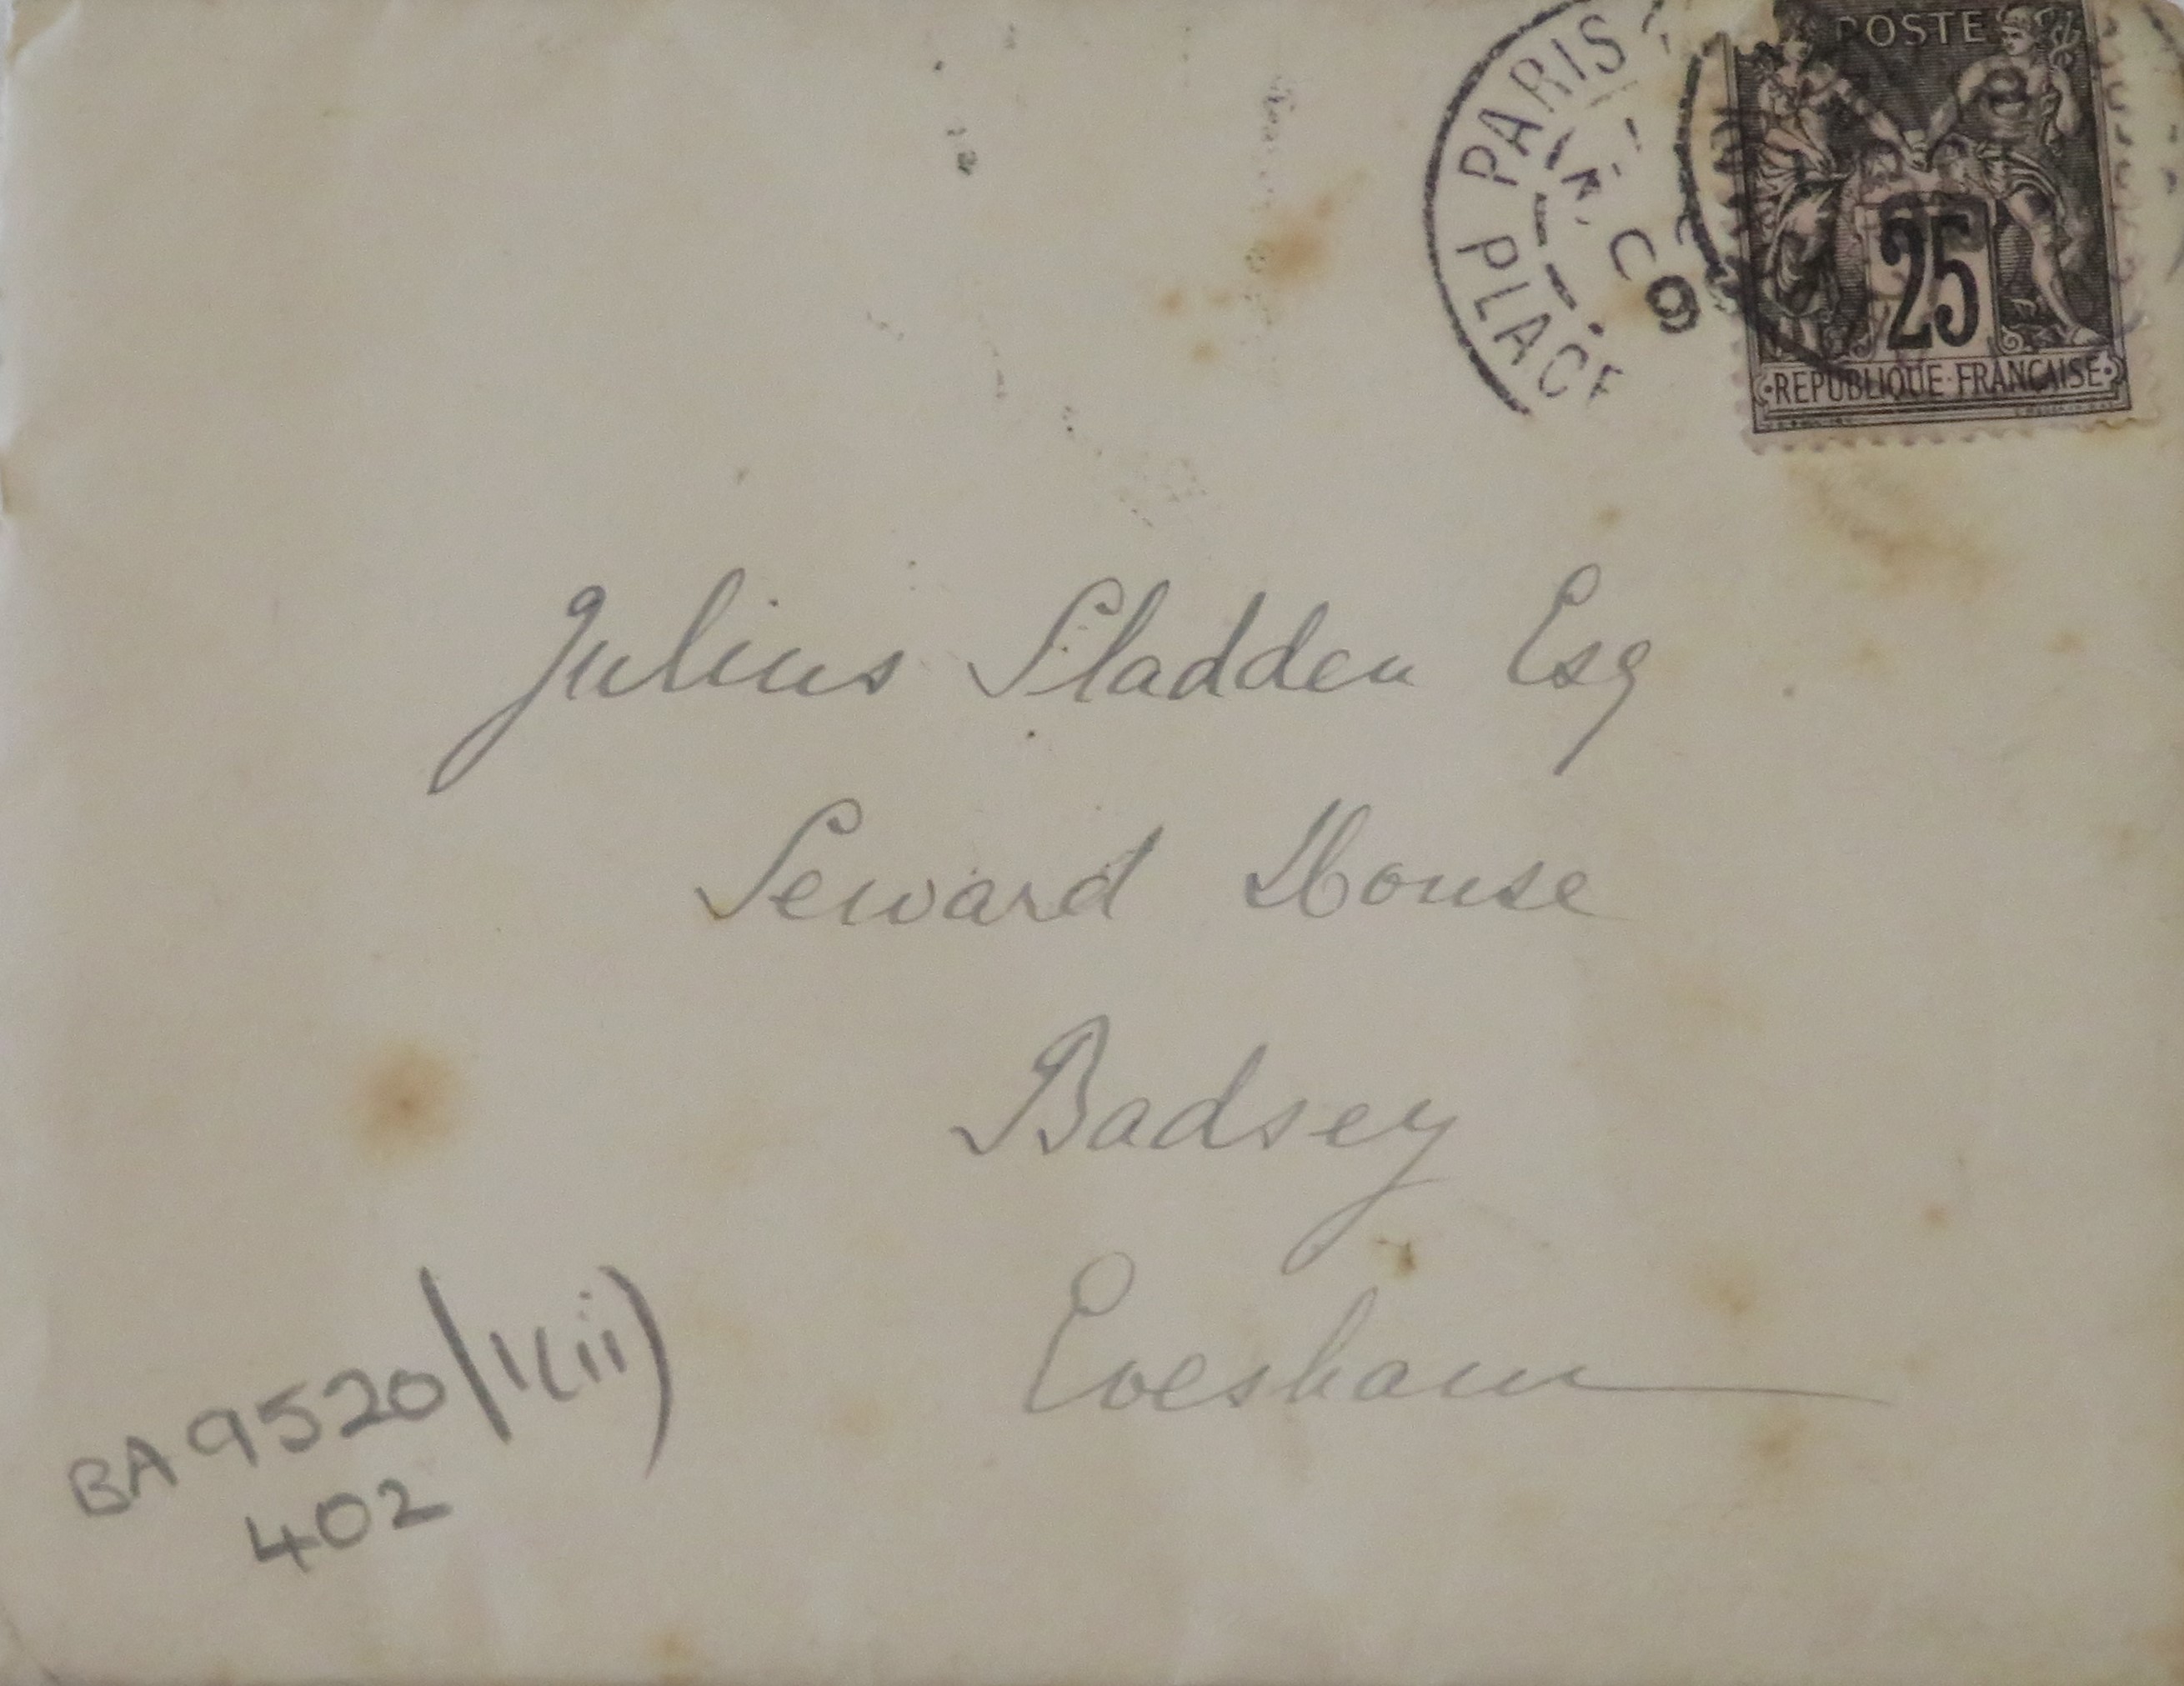 PARIS
PLACE
POSTE
25
REPUBLIQUE·FRANCAISE
Julius Sladden Esq
Seward House
Badsey
Evesham
BA 9520/1(ii)
402